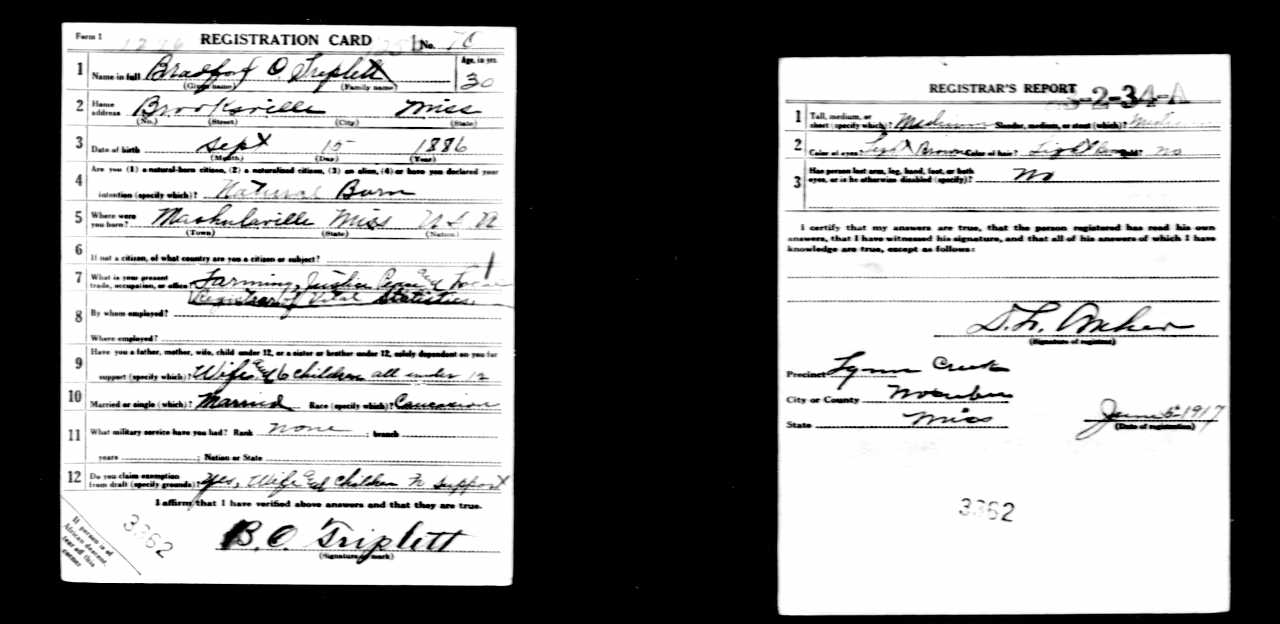 Form 1
REGISTRATION CARD
No. 70
1 Name in full Bradford O Triplett
(Given name) (Family name)
Age, in yrs.
30
2 Home address Brooksville Miss
(No.) (Street) (City) (State)
3 Date of birth Sept 15 1886
(Month) (Day) (Year)
4 Are you (1) a natural-born citizen, (2) a naturalized citizen, (3) an alien, (4) or have you declared your
intention (specify which)? Natural Born
5 Where were you born? Mashulaville Miss U S A
(Town) (State) (Nation)
6 If not a citizen, of what country are you a citizen or subject?
7 What is your present trade, occupation, or office? Farming, Justice Peace and Local
Registrar of Vital Statistics.
8 By whom employed?
Where employed?
9 Have you a father, mother, wife, child under 12, or a sister or brother under 12, solely dependent on you for
support (specify which)? Wife and 6 children all under 12
10 Married or single (which)? Married Race (specify which)? Caucasion
11 What military service have you had? Rank none ; branch
years ; Nation or State
12 Do you claim exemption from draft (specify grounds)? Yes, Wife and Children to support
I affirm that I have verified above answers and that they are true.
B. O. Triplett
(Signature or mark)
If person is of
African descent,
tear off this
corner
3362
REGISTRAR'S REPORT
-2-34-A
1 Tall, medium, or short (specify which)? Medium Slender, medium, or stout (which)?
2 Color of eyes? Light Brown Color of hair? Light Bald? No
3 Has person lost arm, leg, hand, foot, or both eyes, or is he otherwise disabled (specify)? No
I certify that my answers are true, that the person registered has read his own
answers, that I have witnessed his signature, and that all of his answers of which I have
knowledge are true, except as follows:
(Signature of registrar)
Precinct Lynn Creek
City or County Noxubee
State Miss
June 5-1917
(Date of registration)
3362